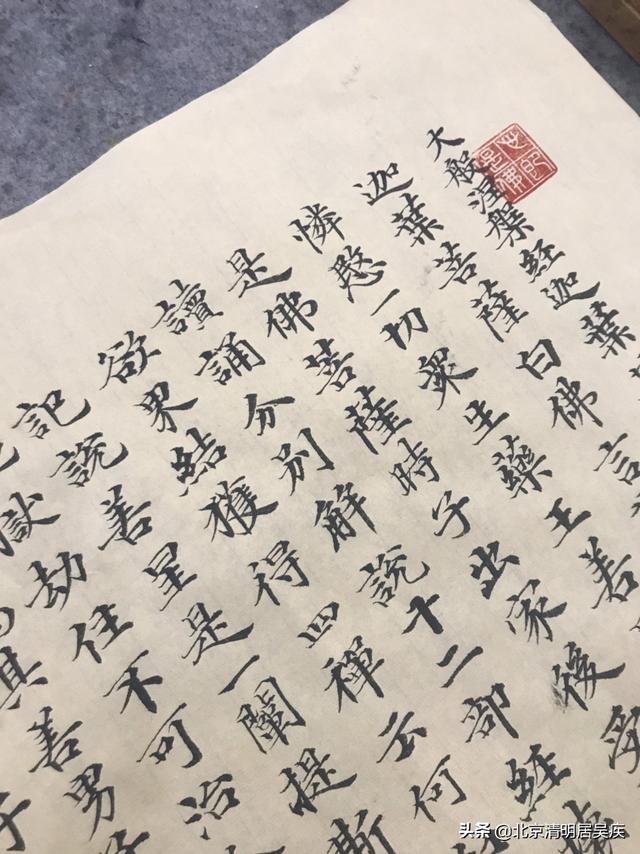 大般涅槃経迦葉
迦葉菩薩白佛言
憐愍一切衆生藥王若
是佛菩薩時子出家後受
讀誦分別解説十二部経
欲界結獲得四禪云何
記説善星是一闡提廝
獄劫住不可治
具善男
子
头条 @北京清明居吴疾